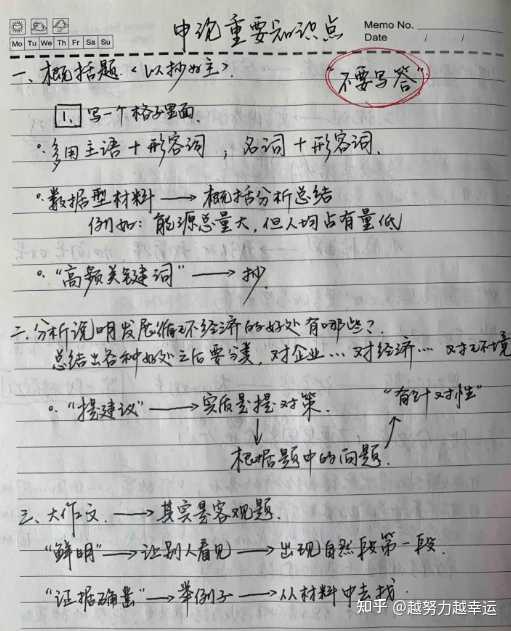 Mo Tu We Th Fr Sa Su
申论重要知识点
Memo No.
Date / /
一、概括题（以抄为主）.
"不要写答"
1. 写一个格子里面.
多用主语+形容词，名词+形容词.
数据型材料→概括分析总结
例如：能源总量大，但人均占有量低
"高频关键词"→抄.
二、分析说明发展循环经济的好处有哪些？
总结出各种好处之后要分类，对企业…对经济…对环境
"提建议"→实质是提对策. "有针对性"
根据题中的问题.
三、大作文.→其实是客观题.
"鲜明"→让别人看见→出现自然段第一段.
"证据确凿"→举例子→从材料中去找.
知乎 @越努力越幸运